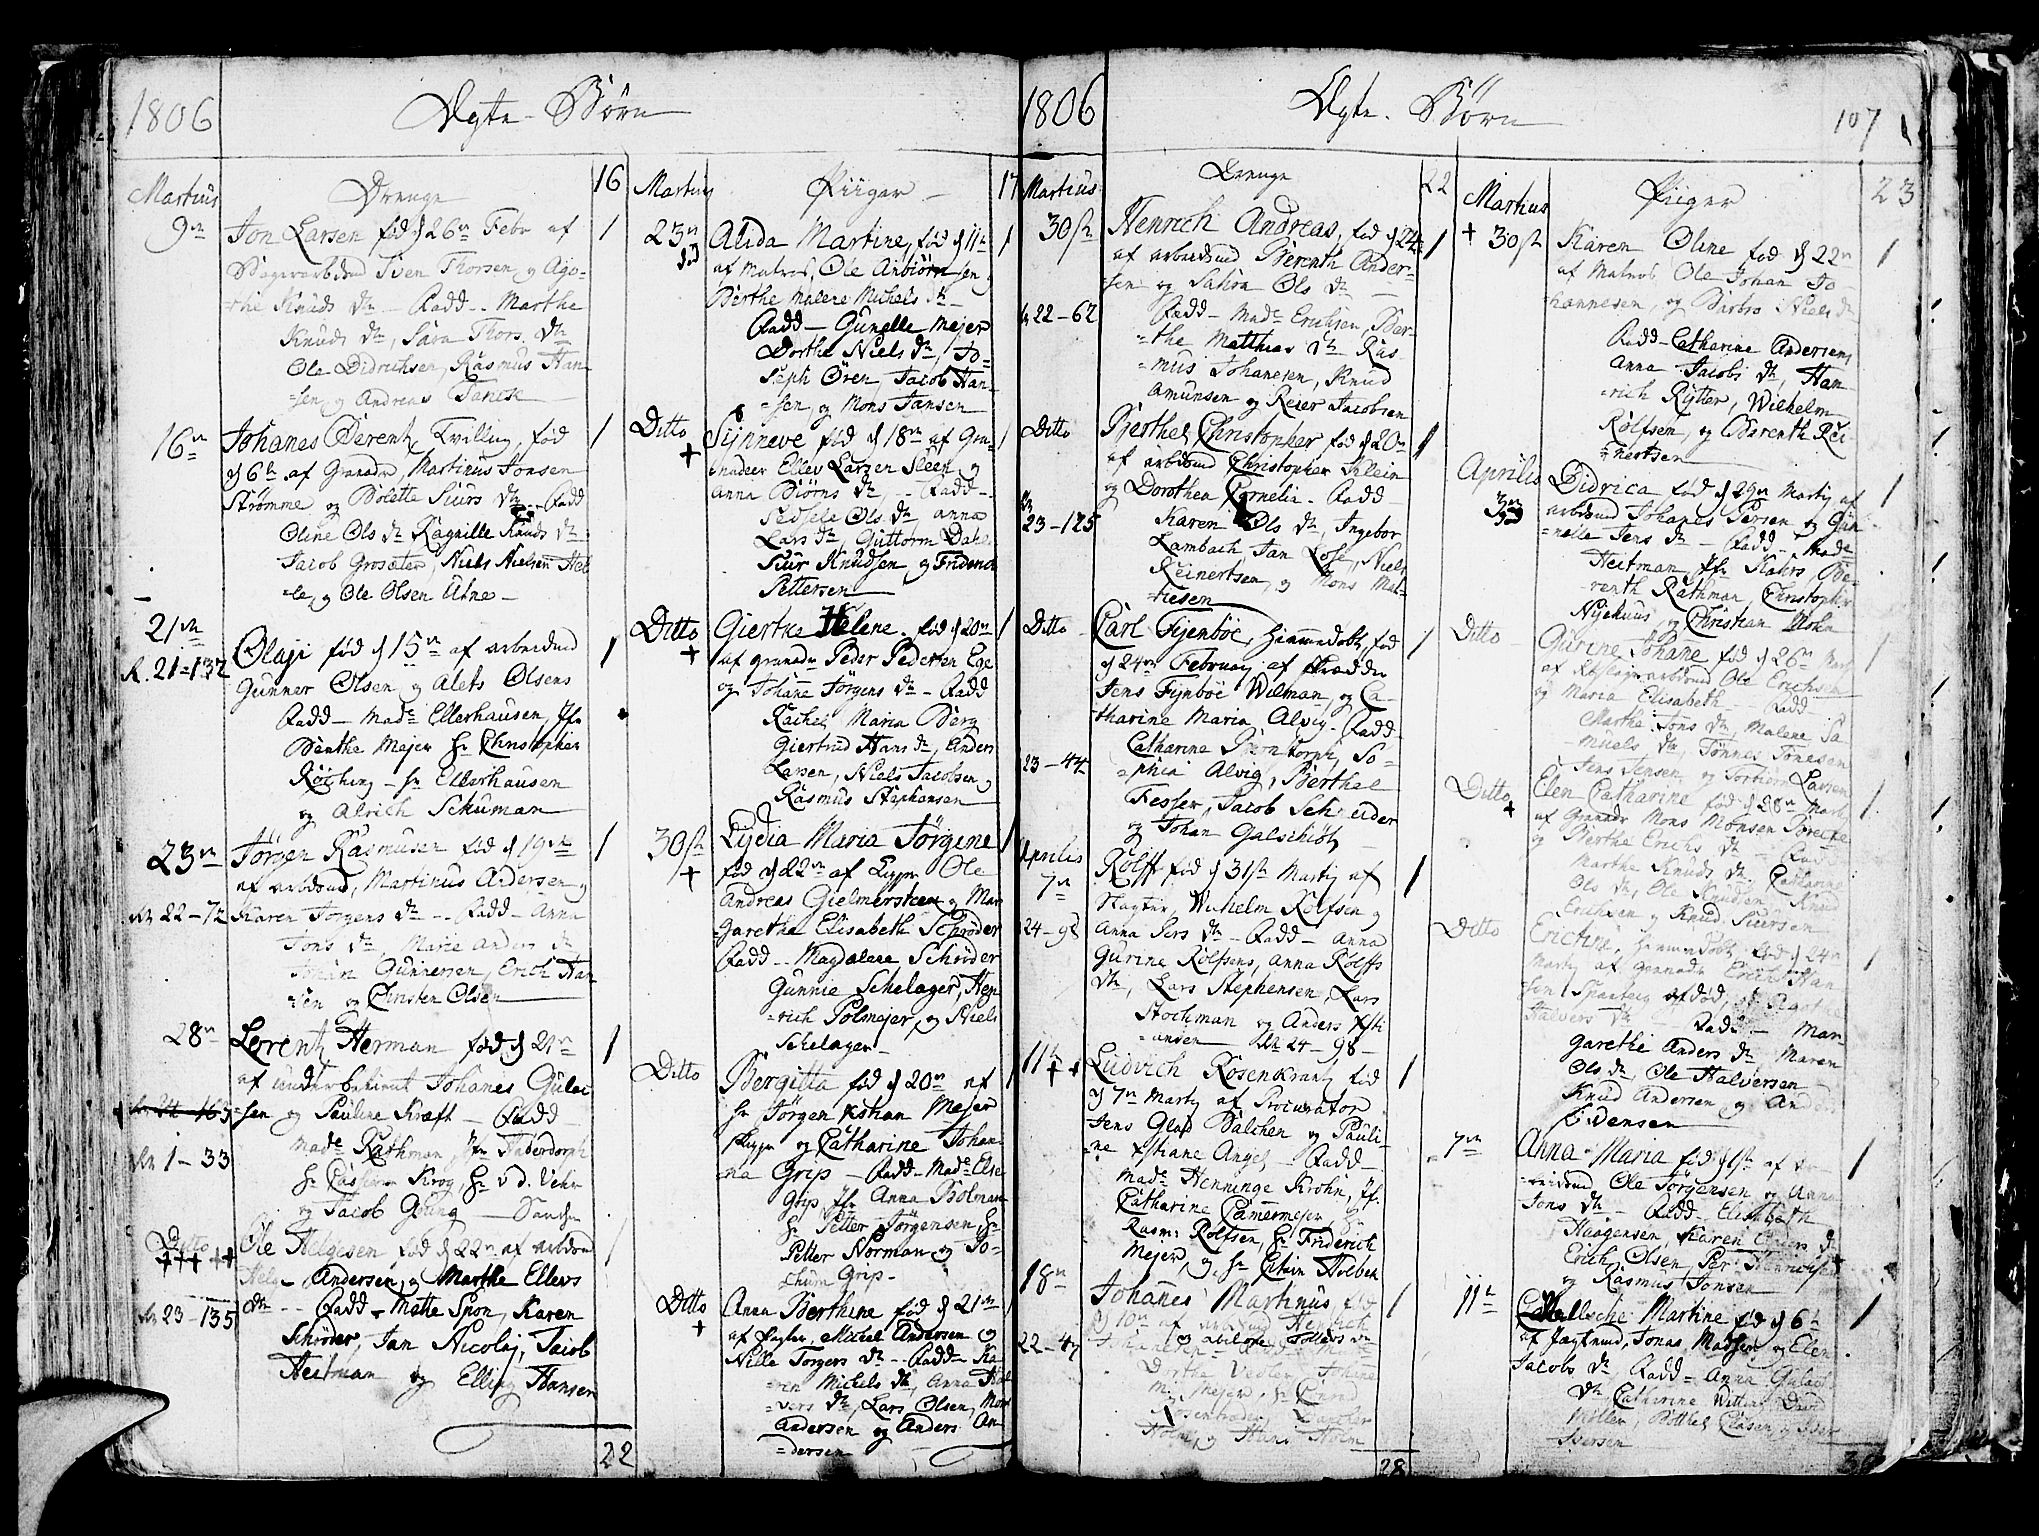 1806
Ægte Børn
Martius
Drenge
16
9n
Jon Larsen fød d 26n Febr af
1
Iver Thorsen, og Ago-
-the Knuds dr Fadd -- Marthe
Knuds dr, Sara Thors dr
Ole Didrichsen, Rasmus Han-
-sen og Andreas Tanck
16n
Johanes Berent, Tvilling, fød
1
d 6t af Granadr, Martinus Jonsen
Strømme og Bolette Siurs dr -- Fadd
Oline Ols dr Ragnille Knuds dr
Jacob Grosæter, Niels Nielsen Hel-
-le, og Ole Olsen Utne -
21n
Olaji fød d 15n af arbeidsmd
1
N. 21-137
Gunner Olsen og Alets Olsens
Fadd - Made Ellerhausen, Jfr
Benthe Mejer Hr Christopher
Røiching - Hr Ellerhausen
og Alrich Schuman
23n
Jørgen Rasmusen fød d 19n
1
af arbdsmd, Martinus Andersen og
Nr 22-72
Karen Jørgens dr -- Fadd - Anna
Jons dr, Marie Anders dr
Johan Gunnersen, Erich Han-
-sen og Christen Olsen
28n
Lorentz Herman fød d 21n
1
af underbetient Johanes Gulac-
-sen og Pauline Kraft - Fadd
Nr 1-33
Made Rathman, Jfr Haderdorph
Hr Casper Krog, Hr v d. Vehr
og Jacob Gøung
Ditto
Ole Helgesen fød d 22n af arbdsmd
1
Helge Andersen og Marthe Ellevs
Nr 23-135
dr -- Fadd - Mette Spon, Karen
Schrøder, Jan Nicolaj, Jacob
Heitman og Elling Hansen
22
Martius
Piiger
17
23n
Alida Martine, fød d 11n
1
af Matros, Ole Anbiørnsen og
Berthe Malene Michels dr -
Fadd - Gunelle Mejer
Dorthe Niels dr, Jo-
-seph Ören, Jacob Han-
-sen, og Mons Jansen
Ditto
+
Synneve fød d 18n af Gra-
1
-nadeer Ellev Larsen Sleen og
Anna Biørns dr, -- Fadd -
Sedsele Ols dr Anna
Lars dr, Guttorm Dahl
Siur Knudsen og Friderich
Pettersen
Ditto
+
Giertrue Helene fød d 20n
1
af granadr Peder Pedersen Ege
og Johane Jörgens dr - Fadd
Rachel Maria Berg
Giertrud Hans dr, Anders
Larsen, Niels Jacobsen og
Rasmus Stephansen
30st
+
Lydia Maria Jørgine
1
fød d 22n af Skippr Ole
Andreas Gielmersteen og Mar-
-garethe Elisabeth Schrøder
Fadd -- Magdalene Schrøder
Gunnie Schelager, Hen-
-rich Polmejer, og Niels
Schelager -
Ditto
Bergitta fød d 20n af
1
Hr Jørgen Xstian Mejer
Skippr og Catharine Johan-
-na Grip - Fadd - Made Else
Grip, Jfr Anna Bolman
Hr Petter Jørgensen, Hr
Petter Norman og Jo-
-chum Grip -
Ditto
+
Anna Berthine fød d 21n
1
af Michel Andersen og
Nille Torgers dr -- Fadd - Ka-
-ren Michels dr, Anna Hal-
-vers dr, Lars Olsen, Mons
Andersen og Anders An-
-dersen
1806
Ægte Børn
107
Martius
Drenge
22
30st
Henrich Andreas, fød d 24n
1
af arbeidsmd Berenth Ander-
-sen og Sahra Ols dr
Nr 22-62
Fadd - Made Erichsen, Ber-
-the Matthias dr Ras-
-mus Johanesen, Knud
Amunsen og Reier Jacobsen
Ditto
Berthel Christopher fød d 20n
1
af arbdsmd Christopher Klein
og Dorothea Cornelia - Fadd
Nr 23-125
Karen Ols dr, Ingebor
Lambach, Jan Lose, Niels
Reinertsen, og Mons Mat-
-tiesen
Ditto
Carl Fijenböe, himmedøbt, fød
1
d 24n February af
Jens Fijnböe Wilman, og Ca-
-tharine Maria Alvig - Fadd
23-44
Catharine Biørn torph, So-
-phia Alvig, Berthel
Fesser, Jacob Schrøder
og Johan Galschiöt
Aprilis
7n
Rolff fød d 31st Marty af
1
Slagter, Wilhelm Rolfsen og
24-98
Anna Pers dr - Fadd - Anna
Gurine Rolfsens, Anna Rolffs
dr, Lars Stephensen, Lars
Stochman og Anders Xsti-
-ansen Nr 24-98 -
11t
++
Ludvich Rosenkrantz fød
1
d 7n Marty af Procurator
Jens Glad Balchen og Pauli-
-ne Xstiane Angel - Fadd -
Made Henninge Krohn, Jfr
Catharine Camermejer, Hr
Rasm: Rolfsen, Hr Friderich
Mejer, og Hr Eitvin Holbek
18n
Johanes Martinus fød
1
d 10n af arbdsmd Henrich
22-47
Johanesen og Abilone Tollevs dr
Dorthe Vedler, Johane
Mejer, Hr Conrad
Holm, og Hans Holm
28
Martius
Piiger
23
+ 30st
Karen Oline fød d 22n
1
af Matros Ole Johan Jo-
-hannesen, og Barbro Niels dr
Fadd - Catharine Andersens
Anna Jacobs dr, Hen-
-rich Rytter, Wilhelm
Rolfsen, og Berenth Rei-
-nertsen
Aprilis
3n
Didrica fød d 29n Marty af
1
arbdsmd Johanes Persen og Gun-
-nelle Jens dr - Fadd - Made
Heitman, Jfr Kahrs, Be-
-renth Rathman, Christopher
Nijehuus, og Christian Mohn
Ditto
Gurine Johane fød d 26n Marty
1
af Ole Erichsen
og Maria Elisabeth - Fadd
Marthe Jons dr, Malene Sa-
-muels dr, Tönnes Tönnesen
Jens Jensen, og Torbiørn Larsen
Ditto
+
Elen Catharine fød d 28n Marty
1
af Granadr Mons Monsen Brecke
og Berthe Erichs dr - Fadd
Marthe Knuds dr, Catharine
Ols dr, Ole Knudsen, Knud
Erichsen og Knud Siversen
Ditto
Erichine, himmedøbt, fød d 24n
1
Marty af granadr Erich Han-
-sen Spanberg afdød, og Agathe
Halvers dr Fadd - Mar-
-garethe Anders dr Maren
Ols dr, Ole Halversen
Knud Andersen og Anders
Endensen
7n
Anna Maria fød d 1st af ar-
1
-beidsmd Ole Torgensen og Anna
Jons dr - Fadd - Elisabeth
Haagensen, Karen Anders dr
Erich Olsen, Per Henrichsen
og Rasmus Jonsen
11t
Martine fød d 6t
1
af Jagtmd, Jonas Madsen og Elen
Jacobs dr - Fadd - Anna Gulach
dr, Catharine Witting, David
Möller, Botthel Clasen, og Iver
Iversen